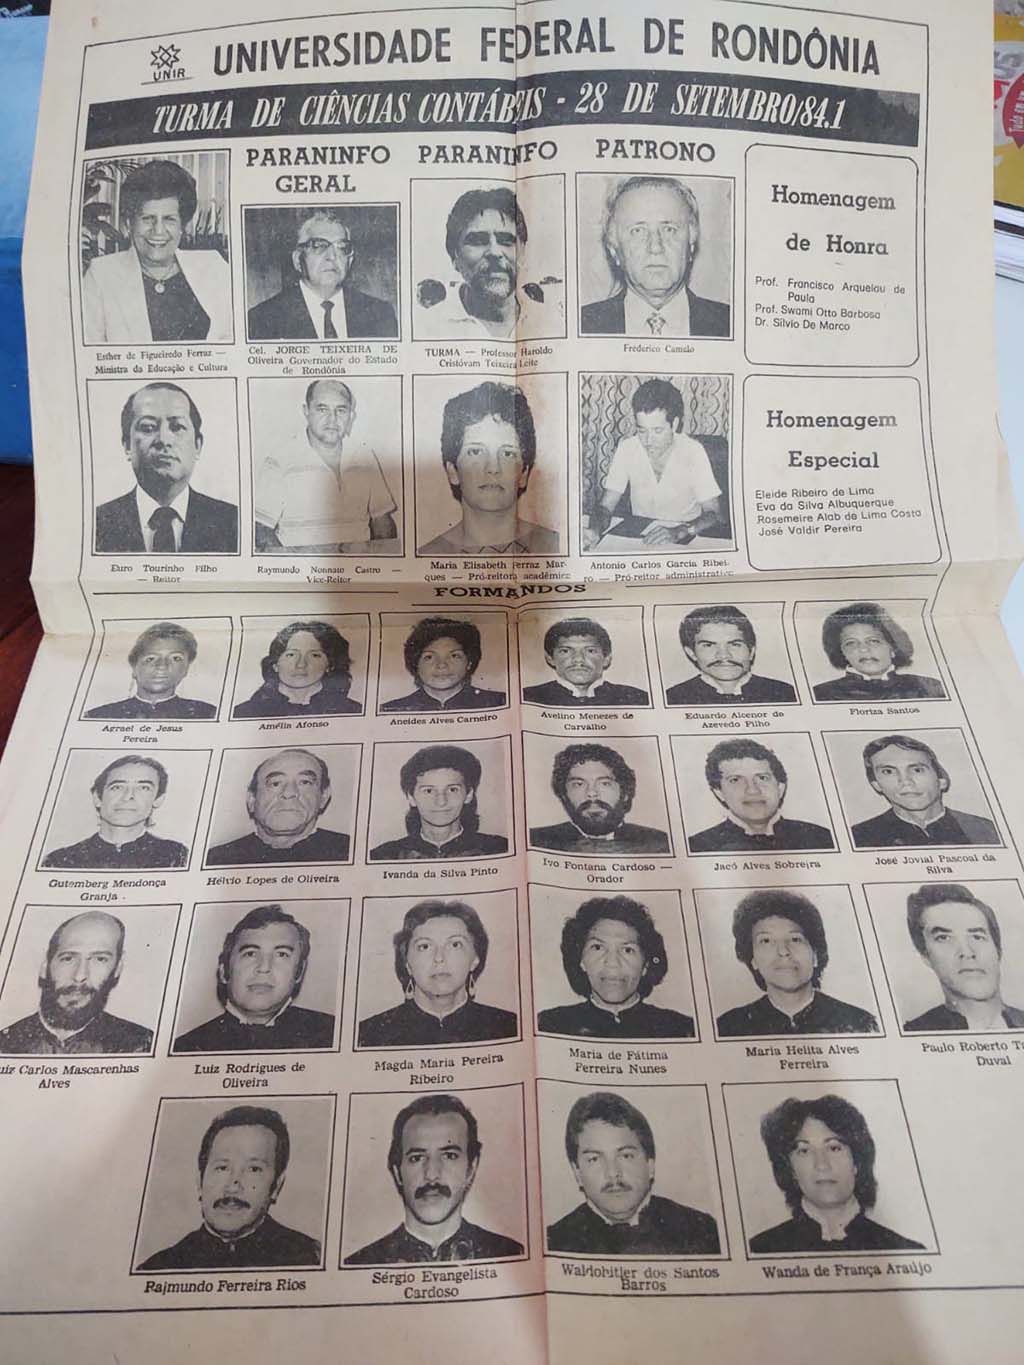 UNIR
UNIVERSIDADE FEDERAL DE RONDÔNIA
TURMA DE CIÊNCIAS CONTÁBEIS - 28 DE SETEMBRO/84.1
Esther de Figueiredo Ferraz —
Ministra da Educação e Cultura
PARANINFO
GERAL
Cel. JORGE TEIXEIRA DE
Oliveira Governador do Estado
de Rondônia
PARANINFO
TURMA — Professor Haroldo
Cristóvam Teixeira Leite
PATRONO
Frederico Camelo
Homenagem
de Honra
Prof. Francisco Arquelau de
Paula
Prof. Swami Otto Barbosa
Dr. Silvio De Marco
Euro Tourinho Filho
— Reitor
Raymundo Nonnato Castro —
Vice-Reitor
Maria Elisabeth Ferraz Mar-
ques — Pró-reitora acadêmica
Antonio Carlos Garcia Ribei-
ro — Pró-reitor administrativo
Homenagem
Especial
Eleide Ribeiro de Lima
Eva da Silva Albuquerque
Rosemeire Alab de Lima Costa
José Valdir Pereira
FORMANDOS
Agrael de Jesus
Pereira
Amélia Afonso
Aneides Alves Carneiro
Avelino Menezes de
Carvalho
Eduardo Alcenor de
Azevedo Filho
Floriza Santos
Gutemberg Mendonça
Granja
Hélvio Lopes de Oliveira
Ivanda da Silva Pinto
Ivo Fontana Cardoso —
Orador
Jacó Alves Sobreira
José Jovial Pascoal da
Silva
uiz Carlos Mascarenhas
Alves
Luiz Rodrigues de
Oliveira
Magda Maria Pereira
Ribeiro
Maria de Fátima
Ferreira Nunes
Maria Helita Alves
Ferreira
Paulo Roberto T
Duval
Raimundo Ferreira Rios
Sérgio Evangelista
Cardoso
Waldohitler dos Santos
Barros
Wanda de França Araújo